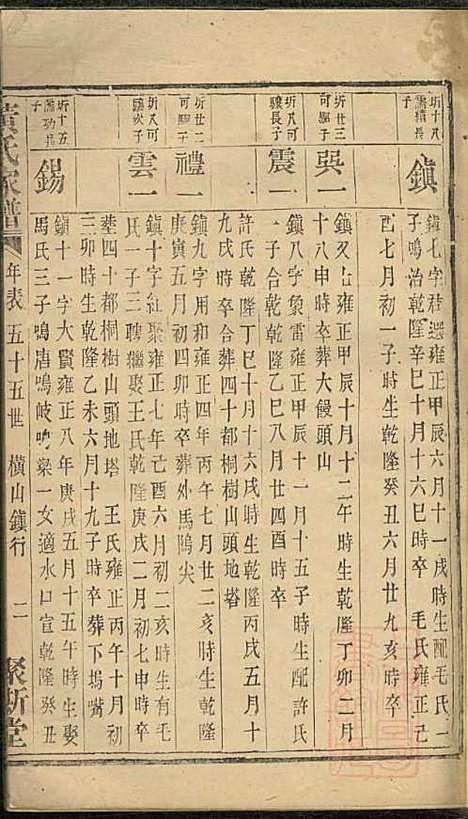 圻十八
靄績長
子
鎮
鎮七字君選雍正甲辰六月十一戌時生配毛氏一
子鳴治乾隆辛巳十月十六巳時卒 毛氏雍正己
酉七月初一子時生乾隆癸丑六月廿九亥時卒
圻廿三
可驅子
㒷一
鎮又七雍正甲辰十月十二午時生乾隆丁卯二月
十八申時卒葬大饅頭山
圻八可
驤長子
震一
鎮八字象雷雍正甲辰十一月十五子時生配許氏
一子合乾隆乙巳八月廿四酉時卒
許氏乾隆丁巳十月十六戌時生乾隆丙戌五月十
九戌時卒合葬四十都桐樹山頭地塔
圻廿二
可 子
禮一
鎮九字用和雍正四年丙午七月廿二亥時生乾隆
庚寅五月初四卯時卒葬外馬鴠尖
圻八可
驤次子
雲一
鎮十字紅聚雍正七年己酉六月初二亥時生有毛
氏一子三繼娶王氏乾隆庚戌二月初七申時卒
葬四十都桐樹山頭地塔 王氏雍正丙午十月初
三卯時生乾隆乙未六月十九子時卒葬下塢嘴
圻十五
靄功長
子
錫
鎮十一字大賢雍正八年庚戌五月十五午時生娶
馬氏三子鳴唐鳴岐鳴梁一女適水口宣乾隆癸丑
黃氏家譜
年表 五十五世 橫山鎮行 二 聚斯堂